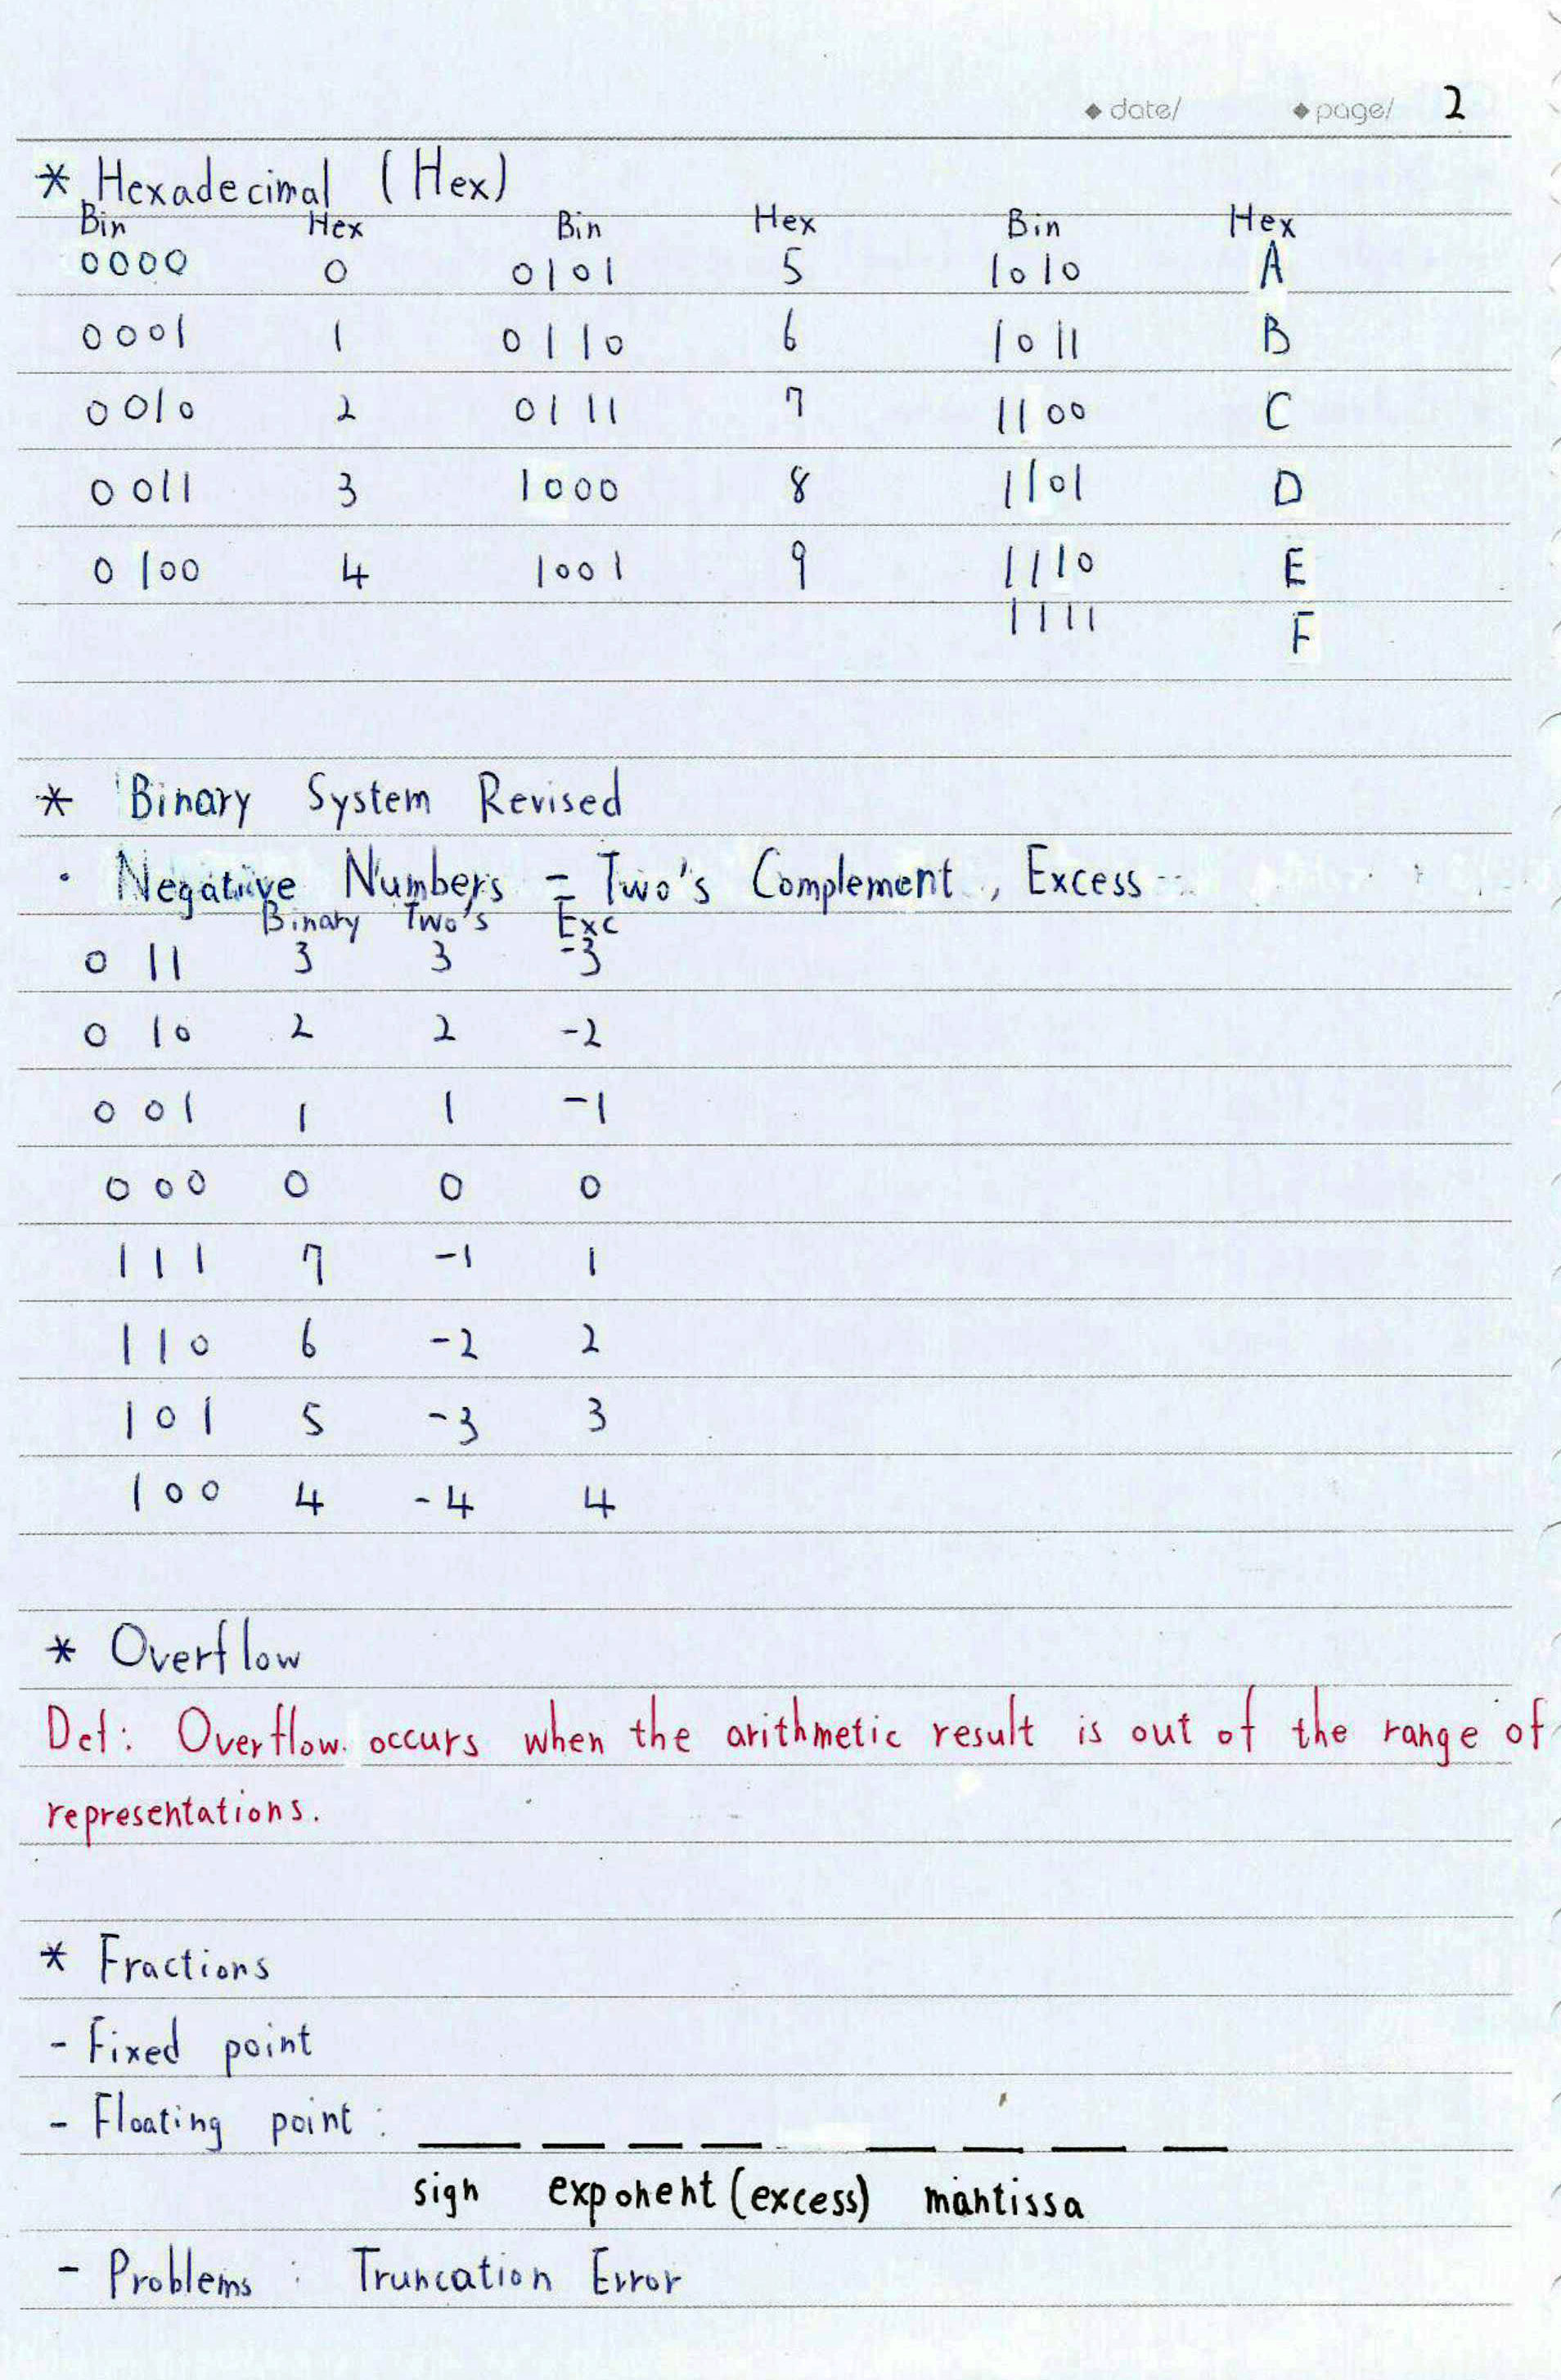 ◆ date/ ◆ page/ 2
* Hexadecimal (Hex)
Bin Hex Bin Hex Bin Hex
0000 0 0101 5 1010 A
0001 1 0110 6 1011 B
0010 2 0111 7 1100 C
0011 3 1000 8 1101 D
0100 4 1001 9 1110 E
1111 F
* Binary System Revised
· Negative Numbers = Two's Complement, Excess
Binary Two's Exc
011 3 3 -3
010 2 2 -2
001 1 1 -1
000 0 0 0
111 7 -1 1
110 6 -2 2
101 5 -3 3
100 4 -4 4
* Overflow
Def: Overflow occurs when the arithmetic result is out of the range of
representations.
* Fractions
- Fixed point
- Floating point : _ _ _ _ _ _ _ _
sign exponent (excess) mantissa
- Problems : Truncation Error